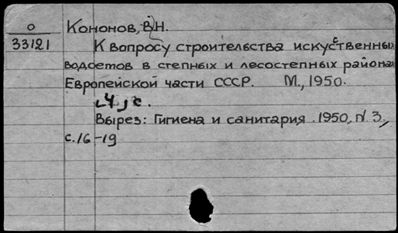 О
33121
Кононов, В.Н.
К вопросу строительства искусственных
водоетов в степных и лесостепных района
Европейской части СССР. М., 1950.
4 с.
Вырез: Гигиена и санитария. 1950, № 3,
с. 16-19